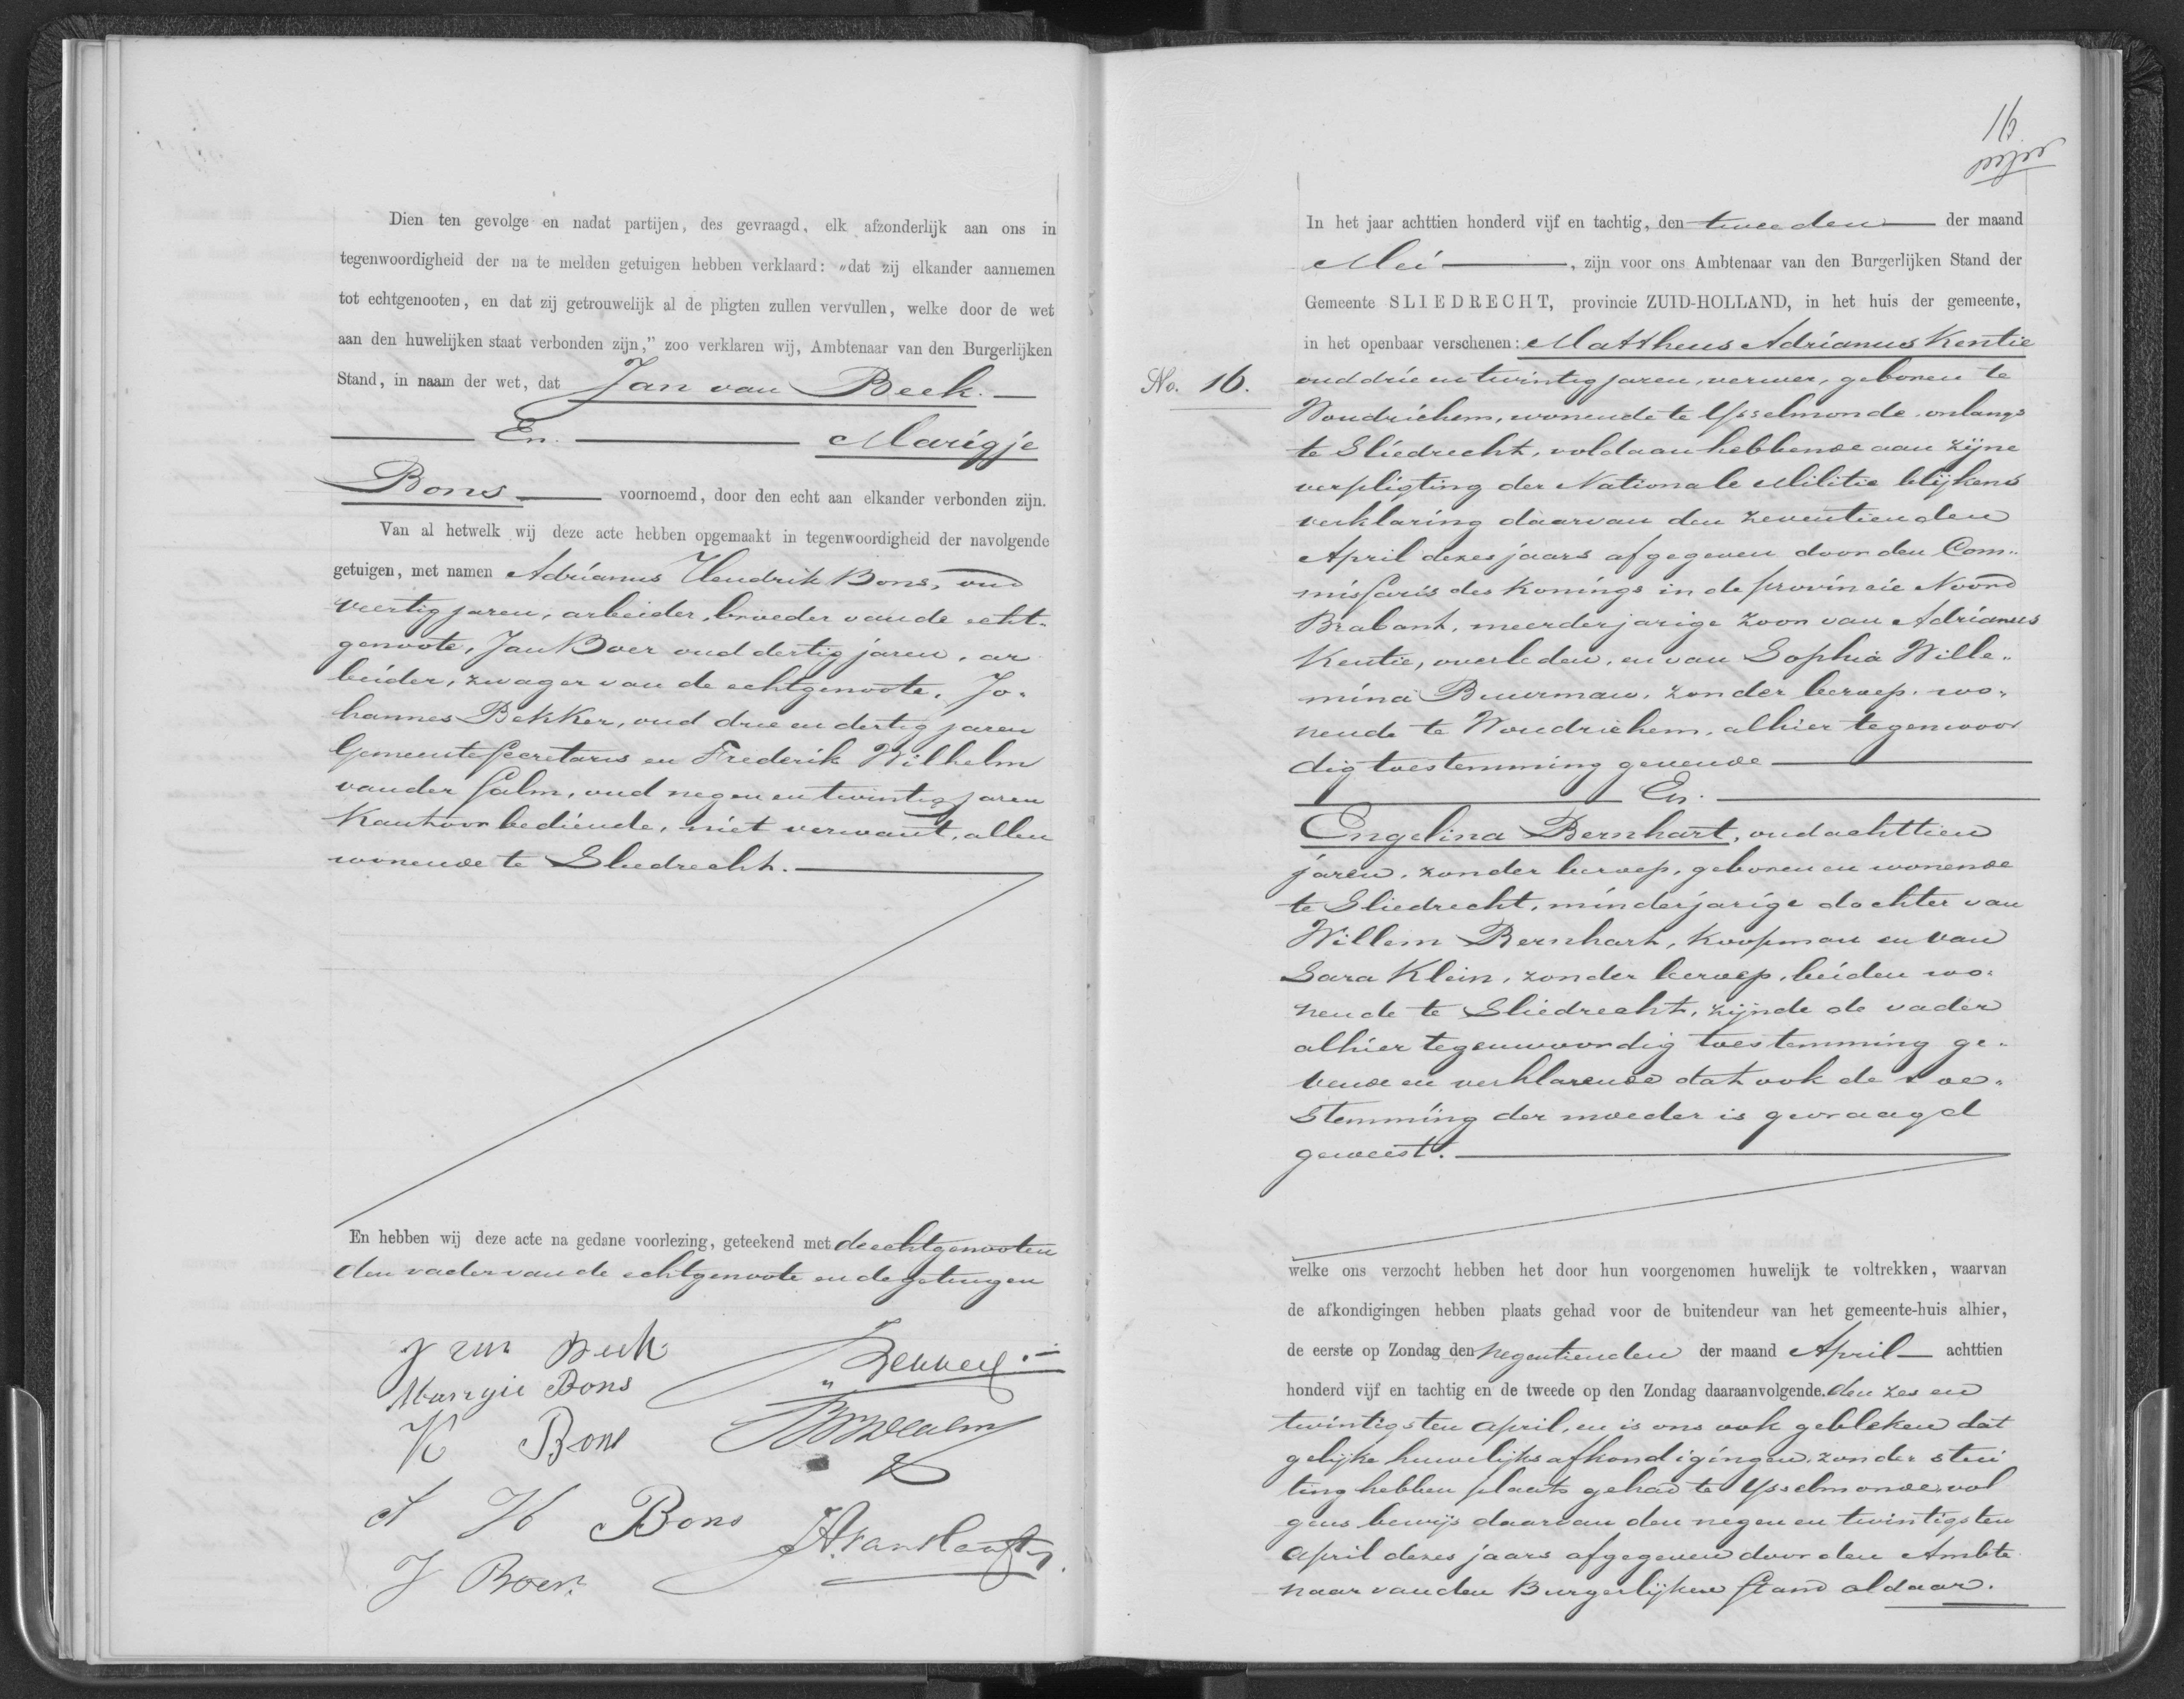 Dien ten gevolge en nadat partijen, des gevraagd, elk afzonderlijk aan ons in
tegenwoordigheid der na te melden getuigen hebben verklaard: „dat zij elkander aannemen
tot echtgenooten, en dat zij getrouwelijk al de pligten zullen vervullen, welke door de wet
aan den huwelijken staat verbonden zijn,” zoo verklaren wij, Ambtenaar van den Burgerlijken
Stand, in naam der wet, dat Jan van Beek.
En. Marigje
Bons voornoemd, door den echt aan elkander verbonden zijn.
Van al hetwelk wij deze acte hebben opgemaakt in tegenwoordigheid der navolgende
getuigen, met namen Adrianus Hendrik Bons, oud
veertig jaren, arbeider, broeder van de echt-
genoote, Jan Boer oud dertig jaren, ar
beider, zwager van de echtgenoote, Jo-
hannes Bekker, oud drie en dertig jaren
Gemeentesecretaris en Frederik Wilhelm
van der Salm, oud negen en twintig jaren
Kantoorbediende, niet verwant, allen
wonende te Sliedrecht.
En hebben wij deze acte na gedane voorlezing, geteekend met de echtgenooten
den vader van de echtgenoote en de getuigen
J van Beek
Marrgie Bons
K Bons
A H Bons
J Boer.
Bekker
16
No. 16.
In het jaar achttien honderd vijf en tachtig, den tweeden der maand
Mei, zijn voor ons Ambtenaar van den Burgerlijken Stand der
Gemeente SLIEDRECHT, provincie ZUID-HOLLAND, in het huis der gemeente,
in het openbaar verschenen: Mattheus Adrianus Kentie
oud drie en twintig jaren, verwer, geboren te
Woudrichem, wonende te Ysselmonde onlangs
te Sliedrecht, voldaan hebbende aan zijne
verpligting der Nationale Militie blijkens
verklaring daarvan den zeventienden
April dezes jaars afgegeven door den Com-
missaris des Konings in de provincie Noord
Brabant, meerderjarige zoon van Adrianus
Kentie, overleden, en van Sophia Wille-
mina Buurman, zonder beroep, wo-
nende te Woudrichem, alhier tegenwoor
dig toestemming gevende
En.
Engelina Bernhart, oud achttien
jaren, zonder beroep, geboren en wonende
te Sliedrecht, minderjarige dochter van
Willem Bernhart, koopman en van
Sara Klein, zonder beroep, beiden wo-
nende te Sliedrecht, zijnde de vader
alhier tegenwoordig toestemming ge-
vende en verklarende dat ook de toe-
stemming der moeder is gevraagd
geweest.
welke ons verzocht hebben het door hun voorgenomen huwelijk te voltrekken, waarvan
de afkondigingen hebben plaats gehad voor de buitendeur van het gemeente-huis alhier,
de eerste op Zondag den negentienden der maand April achttien
honderd vijf en tachtig en de tweede op den Zondag daaraanvolgende. den zes en
twintigsten April, en is ons ook gebleken dat
gelijke huwelijksafkondigingen, zonder stui
ting hebben plaats gehad te Ysselmonde, vol
gens bewijs daarvan den negen en twintigsten
April dezes jaars afgegeven door den Ambte
naar van den Burgerlijken Stand aldaar.